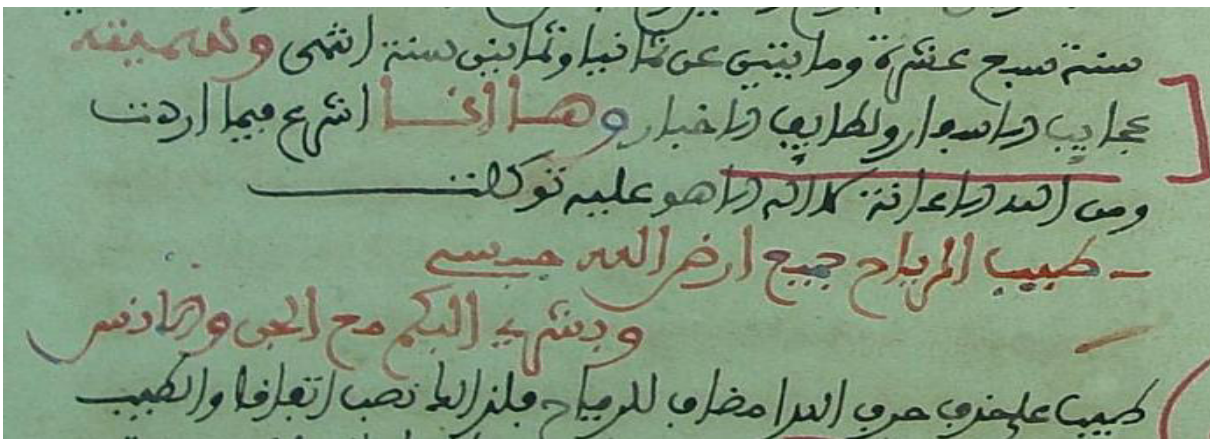 سنة سبع عشرة ومايتين عن ثمانيا وثمانين سنة انتهى وسميته
عجايب الاسفار ولطايف الاخبار وها انا اشرع فيما اردت
ومن الله الاعانة لا اله الا هو عليه توكلت
طبيب الرياح جميع ارض الله حبسي
وبشرى البكم مع الجن والانس
طبيب على حذف حرف الندا مضاف للرياح فلذا نصب اتفاقا والطبيب